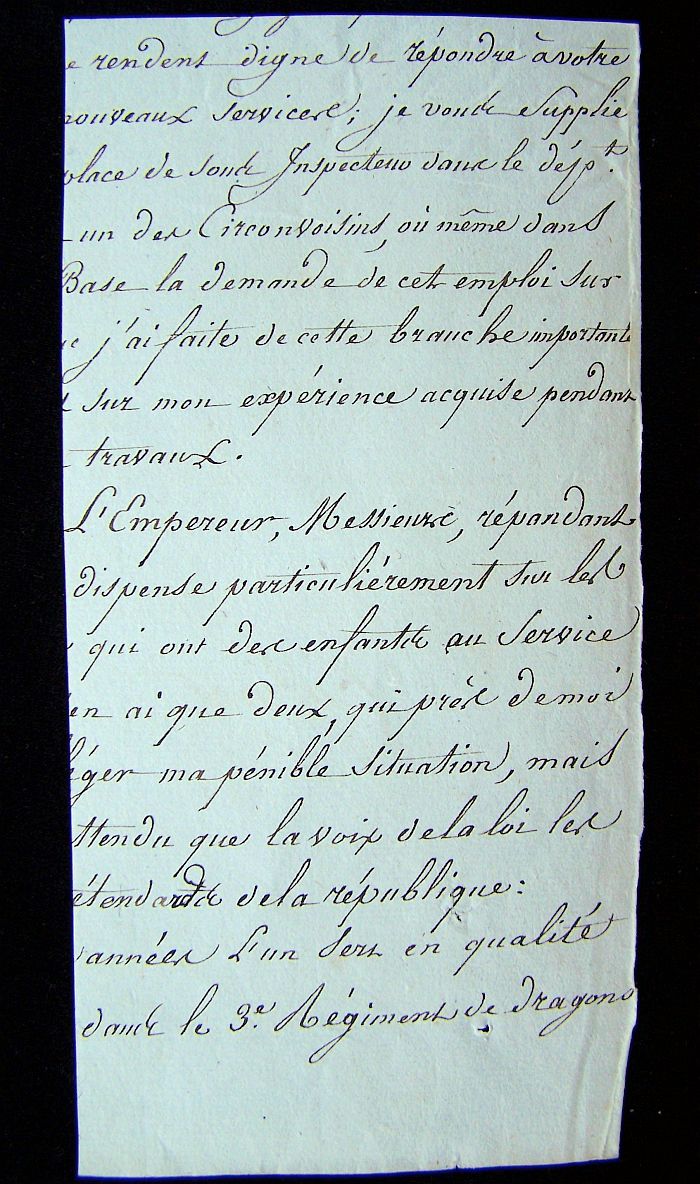 e rendent digne de répondre à votre
nouveaux services; je vous supplie
place de sous Inspecteur dans le dépt.
un des Circonvoisins, où même dans
Base la demande de cet emploi sur
j'ai faite de cette branche importante
sur mon expérience acquise pendant
travaux.
L'Empereur, Messieurs, répandant
dispense particuliérement sur les
qui ont des enfants au Service
en ai que deux, qui près de moi
éger ma pénible situation, mais
ttendu que la voix de la loi les
étendards de la république:
années L'un sert en qualité
dans le 3e. Régiment de dragons